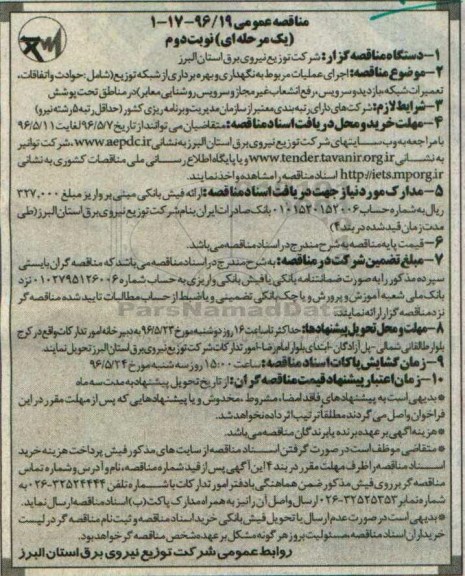 مناقصه عمومی ۹۶/۱۹-۱۷-۱
(یک مرحله ای) نوبت دوم
۱-دستگاه مناقصه گزار: شرکت توزیع نیروی برق استان البرز
۲-موضوع مناقصه: اجرای عملیات مربوط به نگهداری و بهره برداری از شبکه توزیع (شامل: حوادث و اتفاقات،
تعمیرات شبکه، بازدید و سرویس، رفع انشعاب غیرمجاز و سرویس روشنایی معابر) در مناطق تحت پوشش
۳-شرایط لازم: شرکت های دارای رتبه بندی معتبر از سازمان مدیریت و برنامه ریزی کشور (حداقل رتبه ۵ رشته نیرو)
۴-مهلت خرید و محل دریافت اسناد مناقصه: متقاضیان می توانند از تاریخ ۹۶/۵/۷ لغایت ۹۶/۵/۱۱
با مراجعه به وب سایتهای شرکت توزیع نیروی برق استان البرز به نشانی www.aepdc.ir، شرکت توانیر
به نشانی www.tender.tavanir.org.ir و یا پایگاه اطلاع رسانی ملی مناقصات کشوری به نشانی
http://iets.mporg.ir اسناد مناقصه را مشاهده و اخذ نمایند.
۵-مدارک مورد نیاز جهت دریافت اسناد مناقصه: ارائه فیش بانکی مبنی بر واریز مبلغ ۳۲۷,۰۰۰
ریال به شماره حساب ۰۱۰۱۵۲۰۱۵۲۰۰۶ بانک صادرات ایران بنام شرکت توزیع نیروی برق استان البرز (طی
مدت زمان قید شده در بند ۴)
۶-قیمت پایه مناقصه به شرح مندرج در اسناد مناقصه می باشد.
۷-مبلغ تضمین شرکت در مناقصه: به شرح مندرج در اسناد مناقصه می باشد که مناقصه گران بایستی
سپرده مذکور را به صورت ضمانتنامه بانکی یا فیش بانکی واریزی به حساب شماره ۰۱۰۲۷۹۵۱۲۶۰۰۶ نزد
بانک ملی شعبه آموزش و پرورش و یا چک بانکی تضمینی و یا ضبط از حساب مطالبات تایید شده مناقصه گر
نزد مناقصه گزار ارائه نمایند.
۸-مهلت و محل تحویل پیشنهادها: حداکثر تا ساعت ۱۶ روز دوشنبه مورخ ۹۶/۵/۲۳ به دبیرخانه امور تدارکات واقع در کرج
بلوار طالقانی شمالی-پل آزادگان-ابتدای بلوار امام رضا-امور تدارکات شرکت توزیع نیروی برق استان البرز تحویل نمایند
۹-زمان گشایش پاکات اسناد مناقصه: ساعت ۱۵:۰۰ روز سه شنبه مورخ ۹۶/۵/۲۴
۱۰-زمان اعتبار پیشنهاد قیمت مناقصه گران: از تاریخ تحویل پیشنهاد به مدت سه ماه
*بدیهی است به پیشنهادهای فاقد امضاء، مشروط، مخدوش و یا پیشنهادهایی که پس از مهلت مقرر در این
فراخوان واصل می گردند مطلقا ترتیب اثر داده نخواهد شد.
*هزینه آگهی بر عهده برنده یا برندگان مناقصه می باشد.
*متقاضی موظف است در صورت گرفتن اسناد مناقصه از سایت های مذکور فیش پرداخت هزینه خرید
اسناد مناقصه را ظرف مهلت مقرر در بند ۴ این آگهی پس از قید شماره مناقصه، نام و آدرس و شماره تماس
مناقصه گر بر روی فیش مذکور ضمن هماهنگی با دفتر امور تدارکات با شماره تلفن ۳۲۵۲۴۴۴۴-۰۲۶ به
شماره نمابر ۳۲۵۲۵۳۵۳-۰۲۶ ارسال و اصل آن را نیز به همراه مدارک پاکت (ب) اسناد مناقصه ارسال نماید.
*بدیهی است در صورت عدم ارسال یا تحویل فیش بانکی خرید اسناد مناقصه و ثبت نام مناقصه گر در لیست
خریداران اسناد مناقصه، مسئولیت بروز هر گونه مشکل بر عهده شخص مناقصه گر خواهد بود.
روابط عمومی شرکت توزیع نیروی برق استان البرز
ParsNamadData